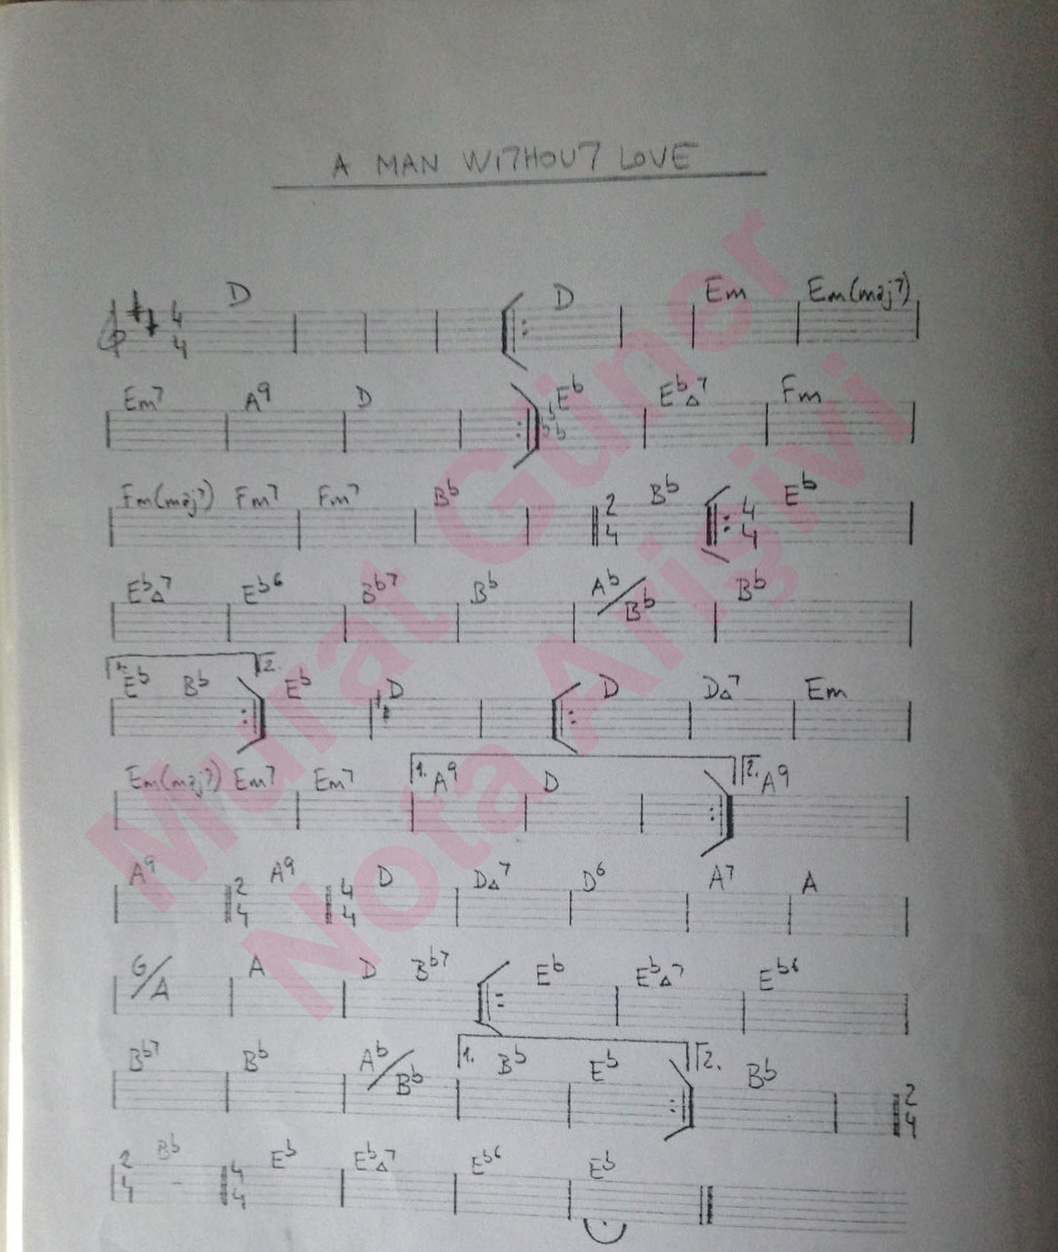 A MAN WITHOUT LOVE
4/4 D D Em Em(maj7)
Em7 A9 D Eb Eb△7 Fm
Fm(maj7) Fm7 Fm7 Bb 2/4 Bb 4/4 Eb
Eb△7 Eb6 Bb7 Bb Ab/Bb Bb
1. Eb Bb 2. Eb D D D△7 Em
Em(maj7) Em7 Em7 1. A9 D 2. A9
A9 2/4 A9 4/4 D D△7 D6 A7 A
G/A A D Bb7 Eb Eb△7 Eb6
Bb7 Bb Ab/Bb 1. Bb Eb 2. Bb 2/4
2/4 Bb 4/4 Eb Eb△7 Eb6 Eb
Murat Güner
Nota Arişivi